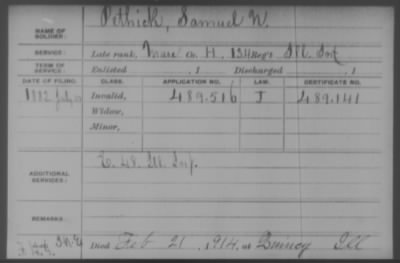 Pethick, Samuel N.
NAME OF SOLDIER:
SERVICE: Late rank, Co. H, 134 Reg't Ill. Inf
TERM OF SERVICE: Enlisted , 1 Discharged , 1
DATE OF FILING. CLASS. APPLICATION NO. LAW. CERTIFICATE NO.
1882 July Invalid, 489.516 J 489.141
Widow,
Minor,
E. 48. Ill. Inf.
ADDITIONAL SERVICES:
REMARKS:
Died Feb 21, 1914, at Quincy Ill